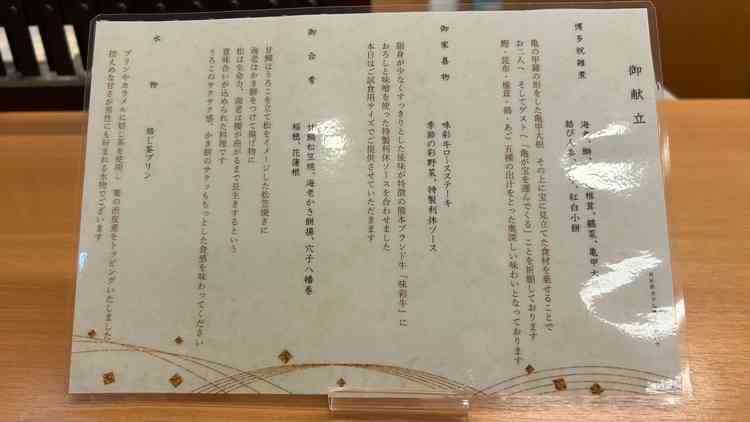 御献立
博多祝雑煮
海老、鰤、椎茸、鶴菜、亀甲大
結び人参、紅白小餅
亀の甲羅の形をした亀甲大根 その上に宝に見立てた食材を乗せることで
お二人へ そしてゲストへ「亀が宝を運んでくる」ことを祈願しております
鰹・昆布・椎茸・鶏・あご 五種の出汁をとった奥深しい味わいとなっております
御家喜物
味彩牛ロースステーキ
季節の彩野菜、特製利休ソース
脂身が少なくすっきりとした後味が特徴の熊本ブランド牛「味彩牛」に
おろしと味噌を使った特製利休ソースを合わせました
本日はご試食用サイズでご提供させていただきます
御台肴
甘鯛松笠焼、海老かき餅揚、穴子八幡巻
稲穂、花蓮根
甘鯛はうろこを立て松をイメージした松笠焼きに
海老はかき餅をつけて揚げ物に
松は生命力、海老は腰が曲がるまで長生きするという
意味合いが込められた料理です
うろこのサクサク感、かき餅のサクッもちっとした食感を味わってください
水物
焙じ茶プリン
プリンやカラメルに焙じ茶を使用し 栗の渋皮煮をトッピングいたしました
控えめな甘さが男性にも好まれる水物でございます